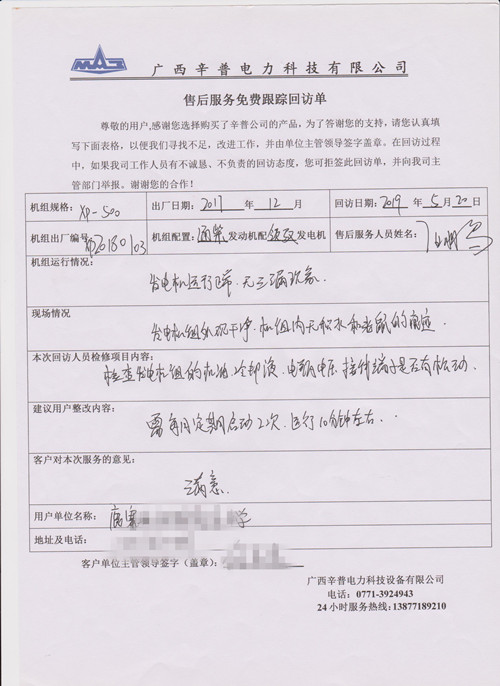 广西辛普电力科技有限公司
售后服务免费跟踪回访单
尊敬的用户,感谢您选择购买了辛普公司的产品，为了答谢您的支持，请您认真填
写下面表格，以便我们寻找不足，改进工作，并由单位主管领导签字盖章。在回访过程
中，如果我司工作人员有不诚恳、不负责的回访态度，您可拒签此回访单，并向我司主
管部门举报。谢谢您的合作！
机组规格： XP-500 出厂日期： 2017 年 12 月 回访日期： 2019 年 5 月 20 日
机组出厂编号 20180103 机组配置： 通柴 发动机配 领效 发电机 售后服务人员姓名：
机组运行情况：
发电机运行正常、无三漏现象.
现场情况
发电机组外观干净.机组内无积水和老鼠的痕迹
本次回访人员检修项目内容：
检查发电机组的机油.冷却液.电瓶电压.接件端子是否有松动.
建议用户整改内容：
需每月定期启动2次.运行10分钟左右.
客户对本次服务的意见：
满意.
用户单位名称： 学
地址及电话：
客户单位主管领导签字（盖章）：
广西辛普电力科技设备有限公司
电话：0771-3924943
24小时服务热线：13877189210